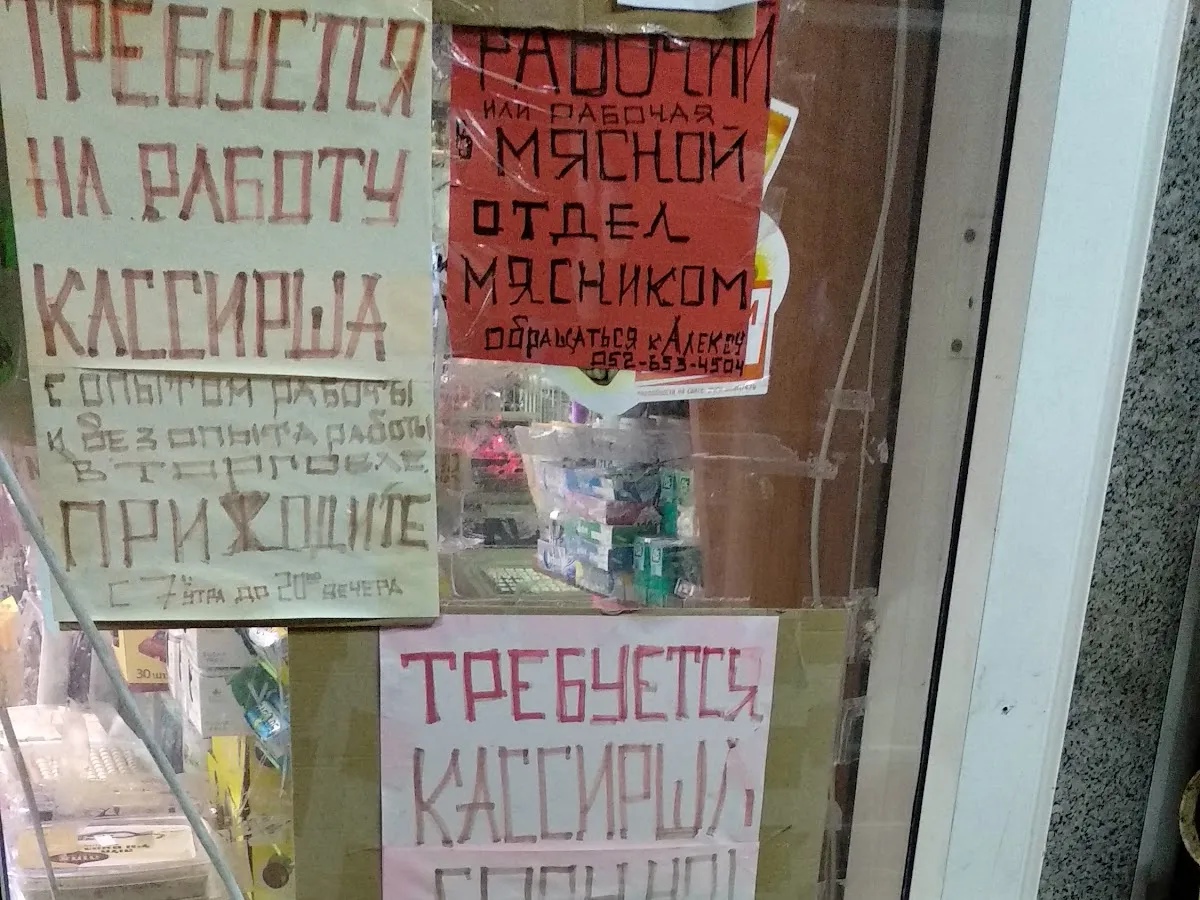 ТРЕБУЕТСЯ
НА РАБОТУ
КАССИРША
С ОПЫТОМ РАБОТЫ
И БЕЗ ОПЫТА РАБОТЫ
В ТОРГОВЛЕ.
ПРИХОДИТЕ
С 7 УТРА ДО 20°° ВЕЧЕРА
РАБОЧИЙ
ИЛИ РАБОЧАЯ
В МЯСНОЙ
ОТДЕЛ
МЯСНИКОМ
ОБРАЩАТЬСЯ К АЛЕКСУ
052-653-4504
ТРЕБУЕТСЯ
КАССИРША
СРОЧНО!
30 шт